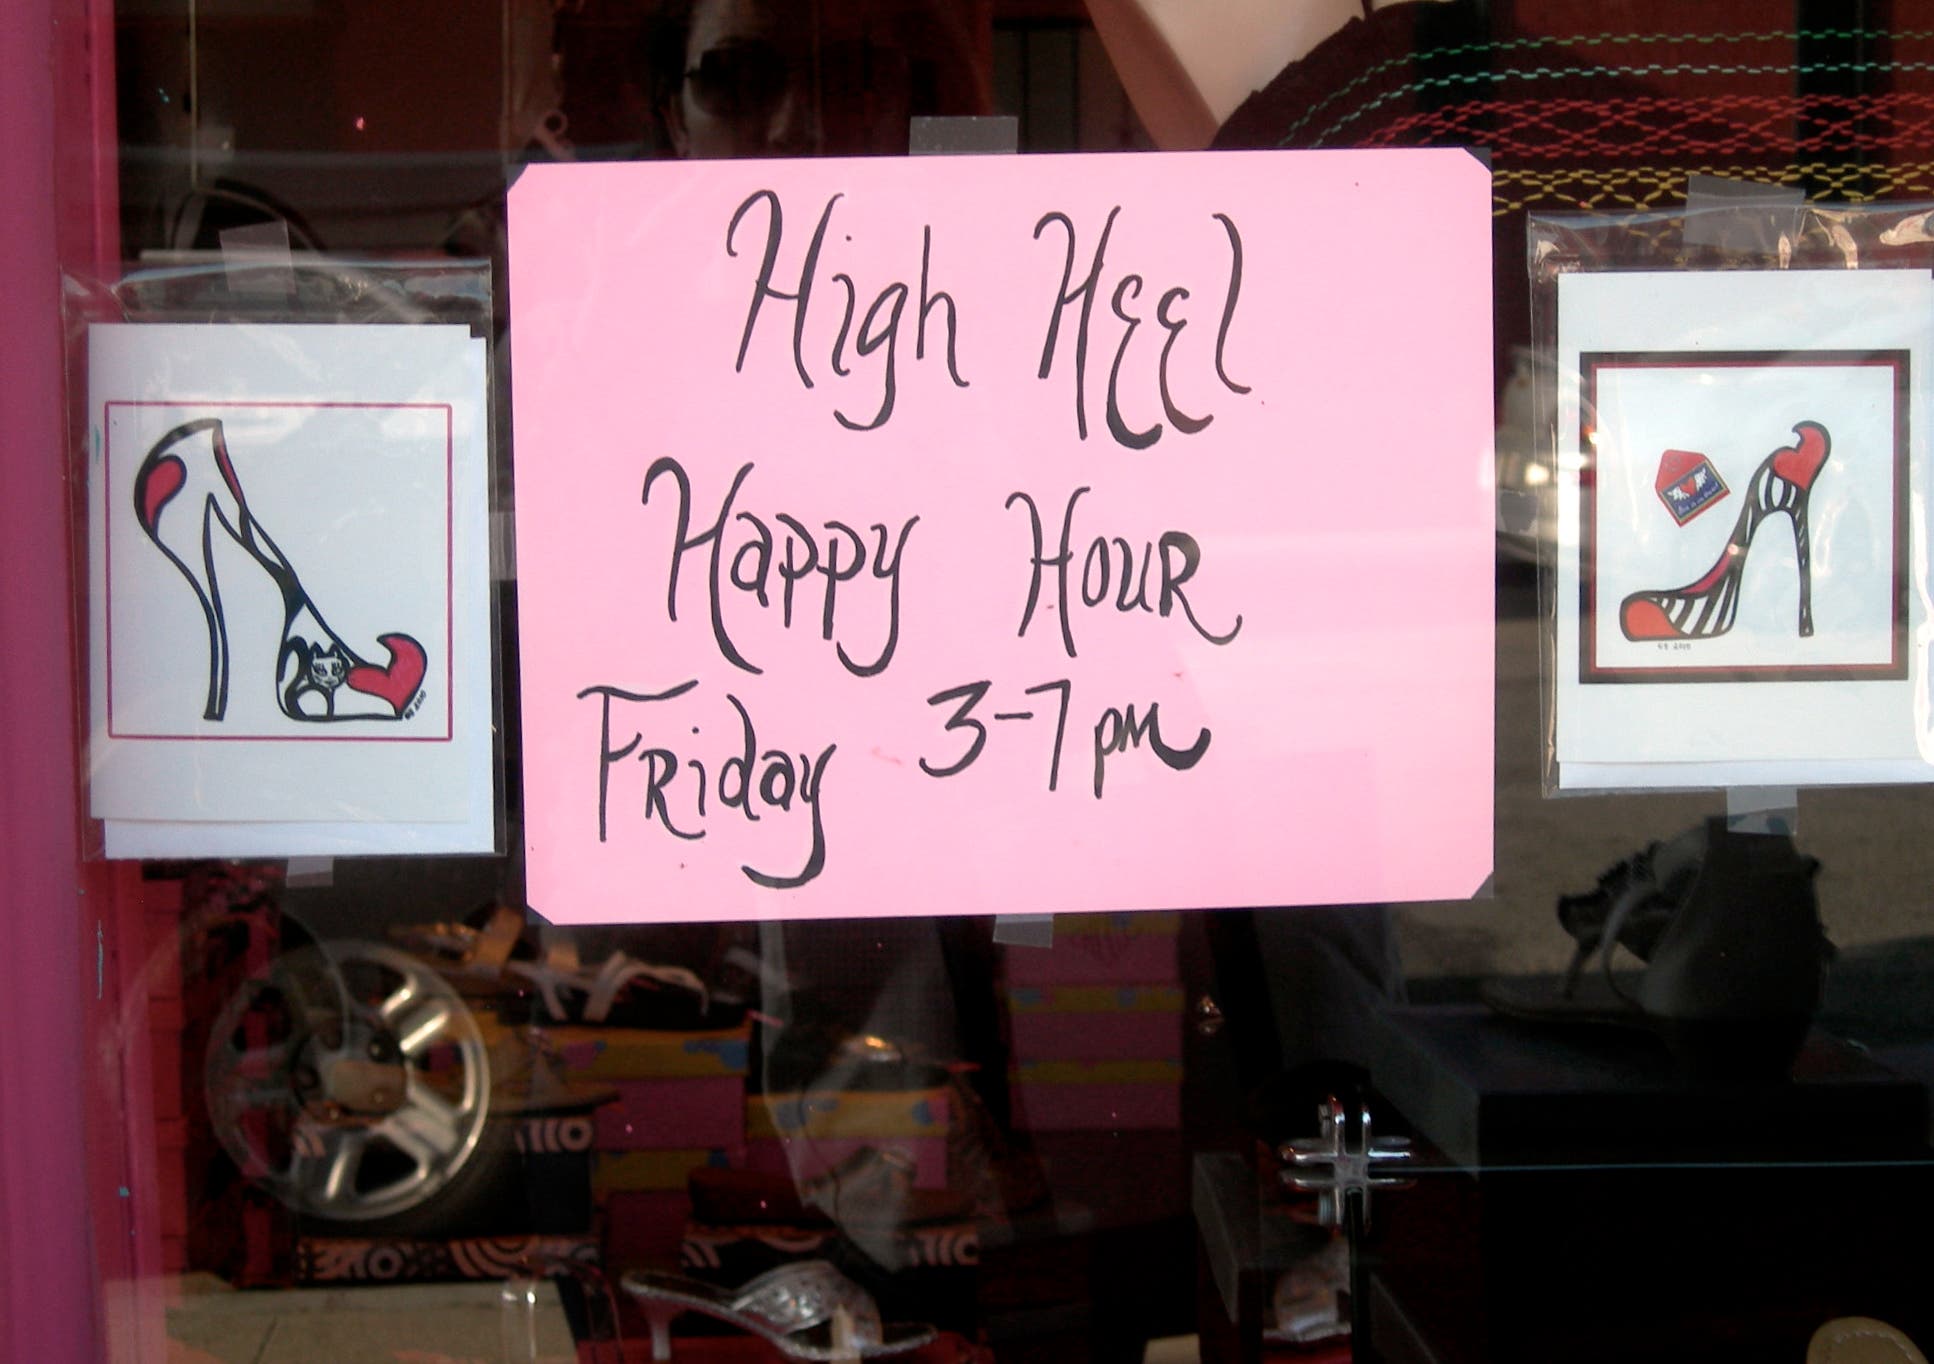 High Heel
Happy Hour
Friday 3-7pm